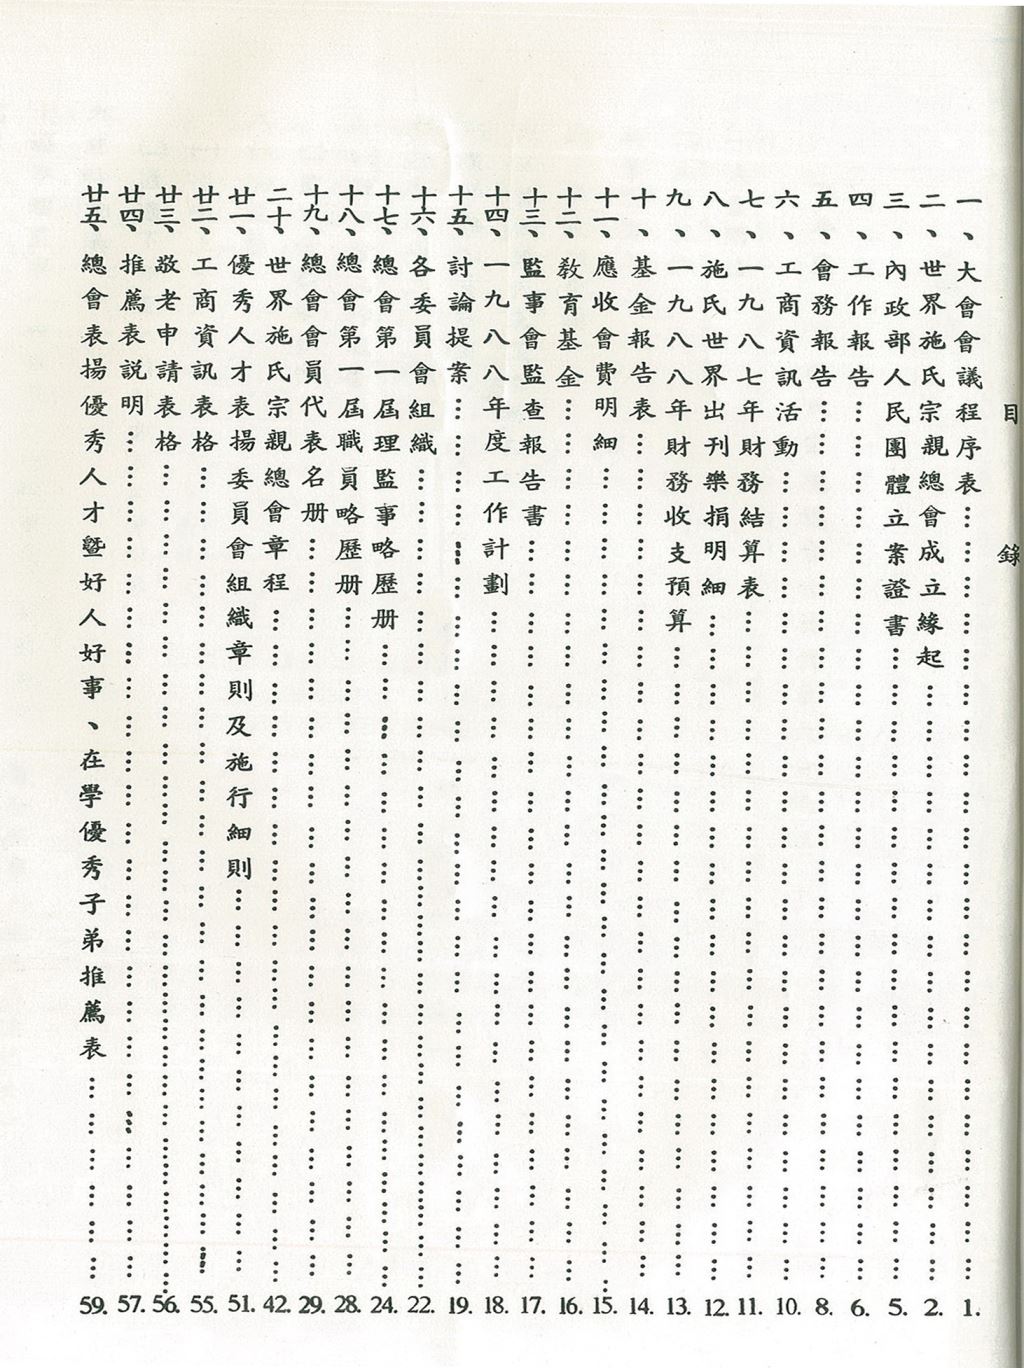 目錄
一、大會會議程序表……1.
二、世界施氏宗親總會成立緣起……2.
三、內政部人民團體立案證書……5.
四、工作報告……6.
五、會務報告……8.
六、工商資訊活動……10.
七、一九八七年財務結算表……11.
八、施氏世界出刊樂捐明細……12.
九、一九八八年財務收支預算……13.
十、基金報告表……14.
十一、應收會費明細……15.
十二、教育基金……16.
十三、監事會監查報告書……17.
十四、一九八八年度工作計劃……18.
十五、討論提案……19.
十六、各委員會組織……22.
十七、總會第一屆理監事略歷册……24.
十八、總會第一屆職員略歷册……28.
十九、總會會員代表名册……29.
二十、世界施氏宗親總會章程……42.
廿一、優秀人才表揚委員會組織章則及施行細則……51.
廿二、工商資訊表格……55.
廿三、敬老申請表格……56.
廿四、推薦表説明……57.
廿五、總會表揚優秀人才暨好人好事、在學優秀子弟推薦表……59.